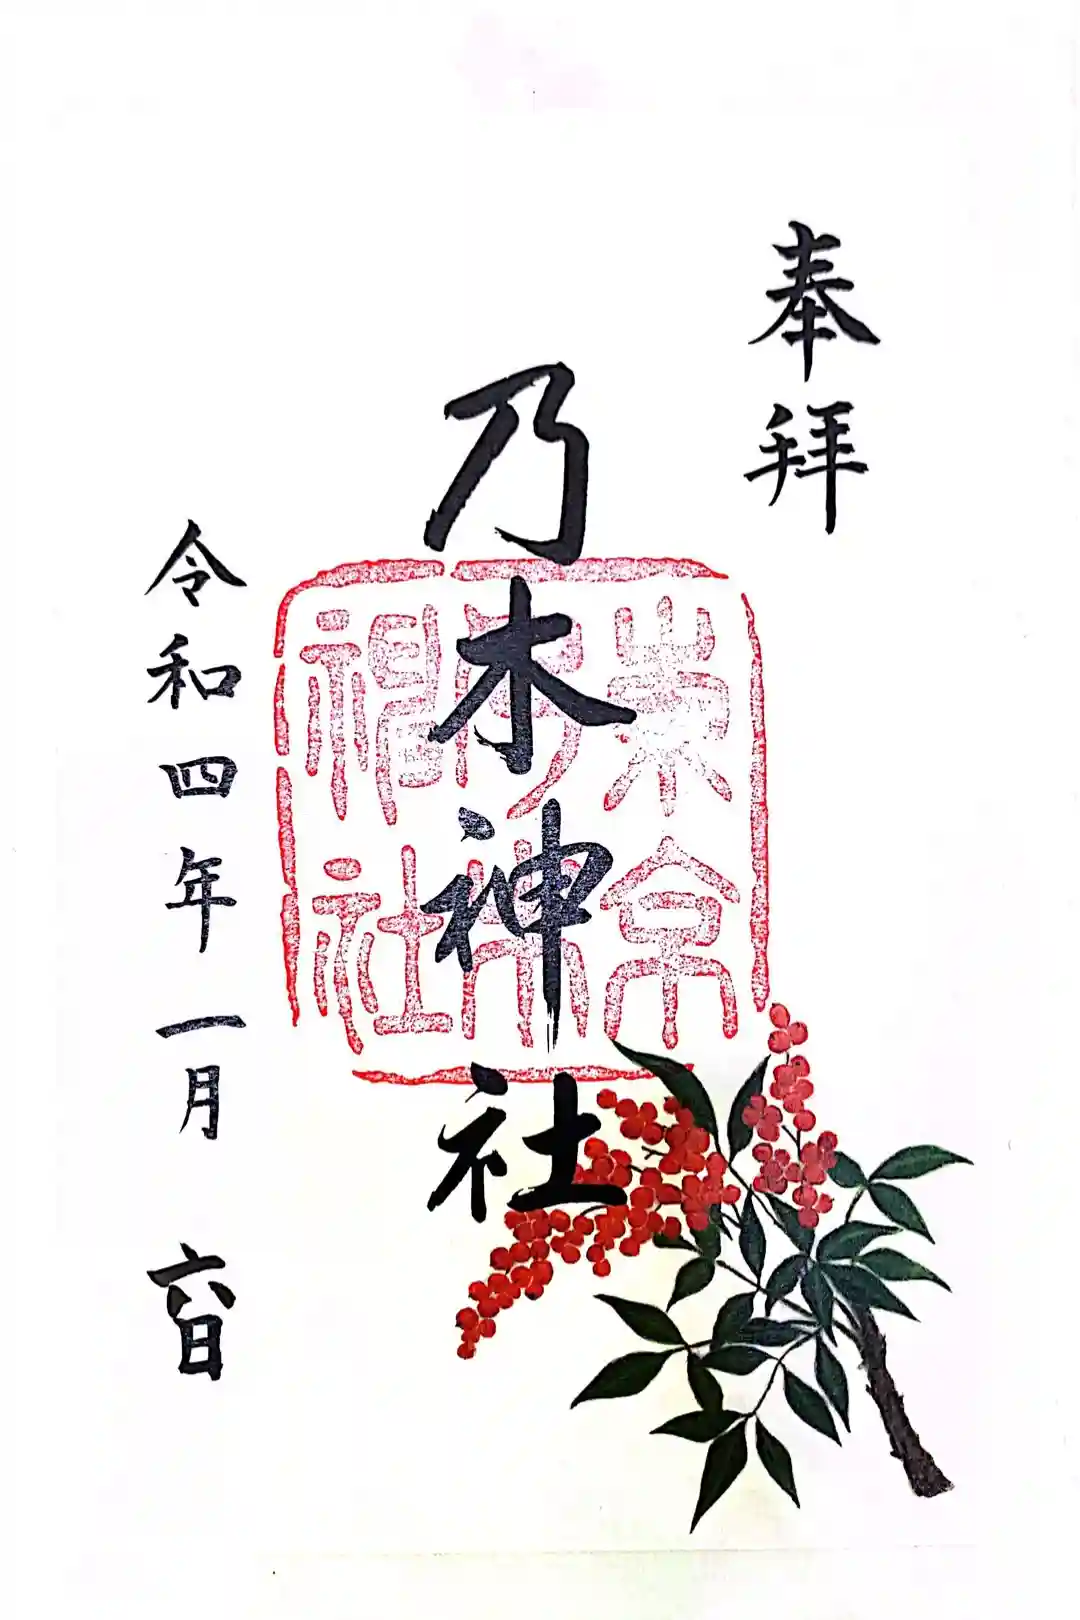 奉拜
乃木神社
東京乃木神社
令和四年一月六日